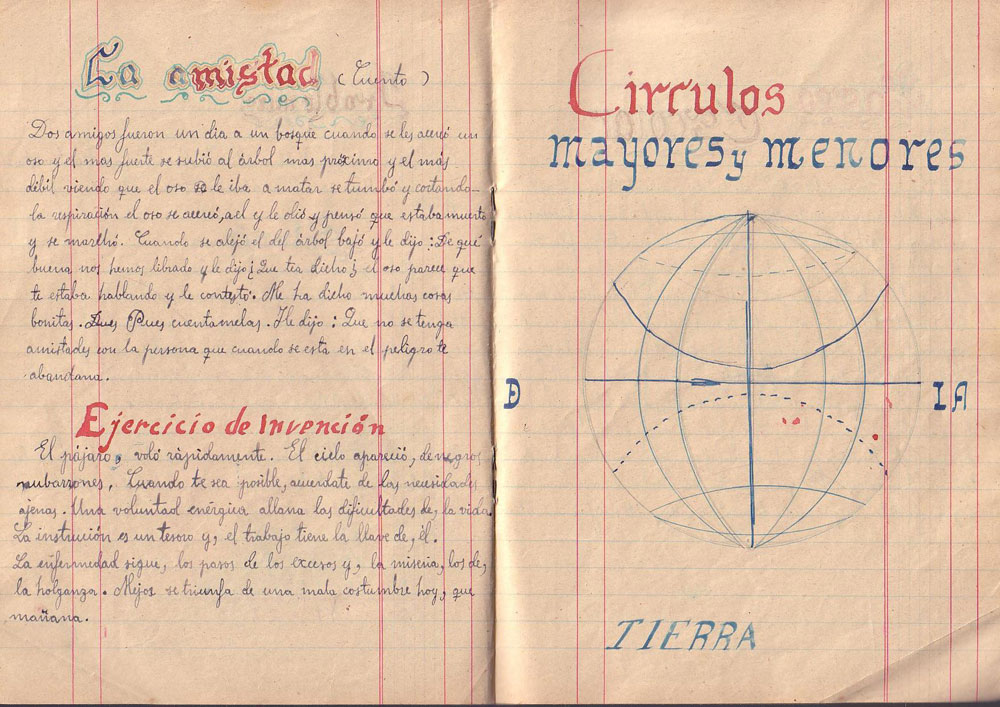 La amistad (Cuento)
Dos amigos fueron un dia a un bosque cuando se les acercó un
oso y el mas fuerte se subió al árbol mas próximo y el más
débil viendo que el oso le iba a matar se tumbó y cortando
la respiración el oso se acercó, a el y le olió y pensó que estaba muerto
y se marchó. Cuando se alejó el del árbol bajó y le dijo: De qué
buena nos hemos librado y le dijo ¿Que tea dicho? el oso parece que
te estaba hablando y le contestó. Me ha dicho muchas cosas
bonitas. Pues cuentamelas. Me dijo: Que no se tenga
amistades con la persona que cuando se esta en el peligro te
abandana.
Ejercicio de Invención
El pájaro, voló rápidamente. El cielo apareció, de negros
nubarrones. Cuando te sea posible, acuerdate de las necesidades
ajenas. Una voluntad enérgica allana las dificultades de, la vida.
La instrución es un tesoro y, el trabajo tiene la llave de, él.
La enfermedad sigue, los pasos de los excesos y, la miseria, los de,
la holganza. Mejor se triunfa de una mala costumbre hoy, que
mañana.
Circulos
mayores y menores
D IA
TIERRA